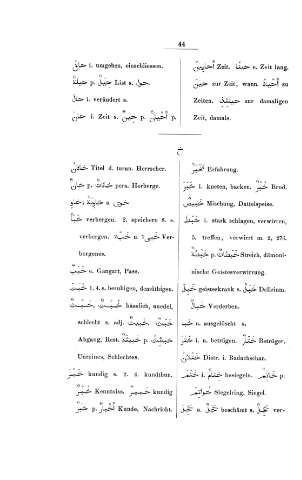 44
حاق i. umgeben, einschliessen.
حيلة p. حيل List s. حول.
حال i. verändert s.
حان i. Zeit s. حين p. أحيان p.
أحايين Zeit. حينا e. Zeit lang.
حين zur Zeit, wann. أحيانا zu
Zeiten. حينئذ zur damaligen
Zeit, damals.
خ
خاقان Titel d. turan. Herrscher.
خان p. خانات pers. Herberge.
خاو, خاوية s. خوى.
خبأ verbergen. 2. speichern 8. s.
verbergen. خبء u. Ver-
borgenes.
خبب u. Gangart, Pass.
خبت i. 4. s. beruhigen, demüthigen.
خبث, خبيث hässlich, unedel,
schlecht s. adj. خبيث, خبث
Abgang, Rest. خبيثة p. خبائث
Unreines, Schlechtes.
خبير kundig s. 2. 4. kundthun.
خبر Kenntniss. خبير kundig
خبر p. أخبار Kunde, Nachricht.
خبر Erfahrung.
خبز i. kneten, backen. خبز Brod.
خبيص Mischung, Dattelspeise.
خبط i. stark schlagen, verwirren,
5. treffen, verwirrt m. 2, 276.
خبطة p. خبطات Streich, dämoni-
nische Geistesverwirrung.
خبل geisteskrank s. خبل Delirium.
خبال Verderben.
خبا u. ausgelöscht s.
ختر i. u. betrügen. ختار Betrüger.
ختلان Distr. i. Badachschan.
ختم i. besiegeln. خاتم p.
خواتم Siegelring, Siegel.
خجل u. خجل beschämt s. ver-